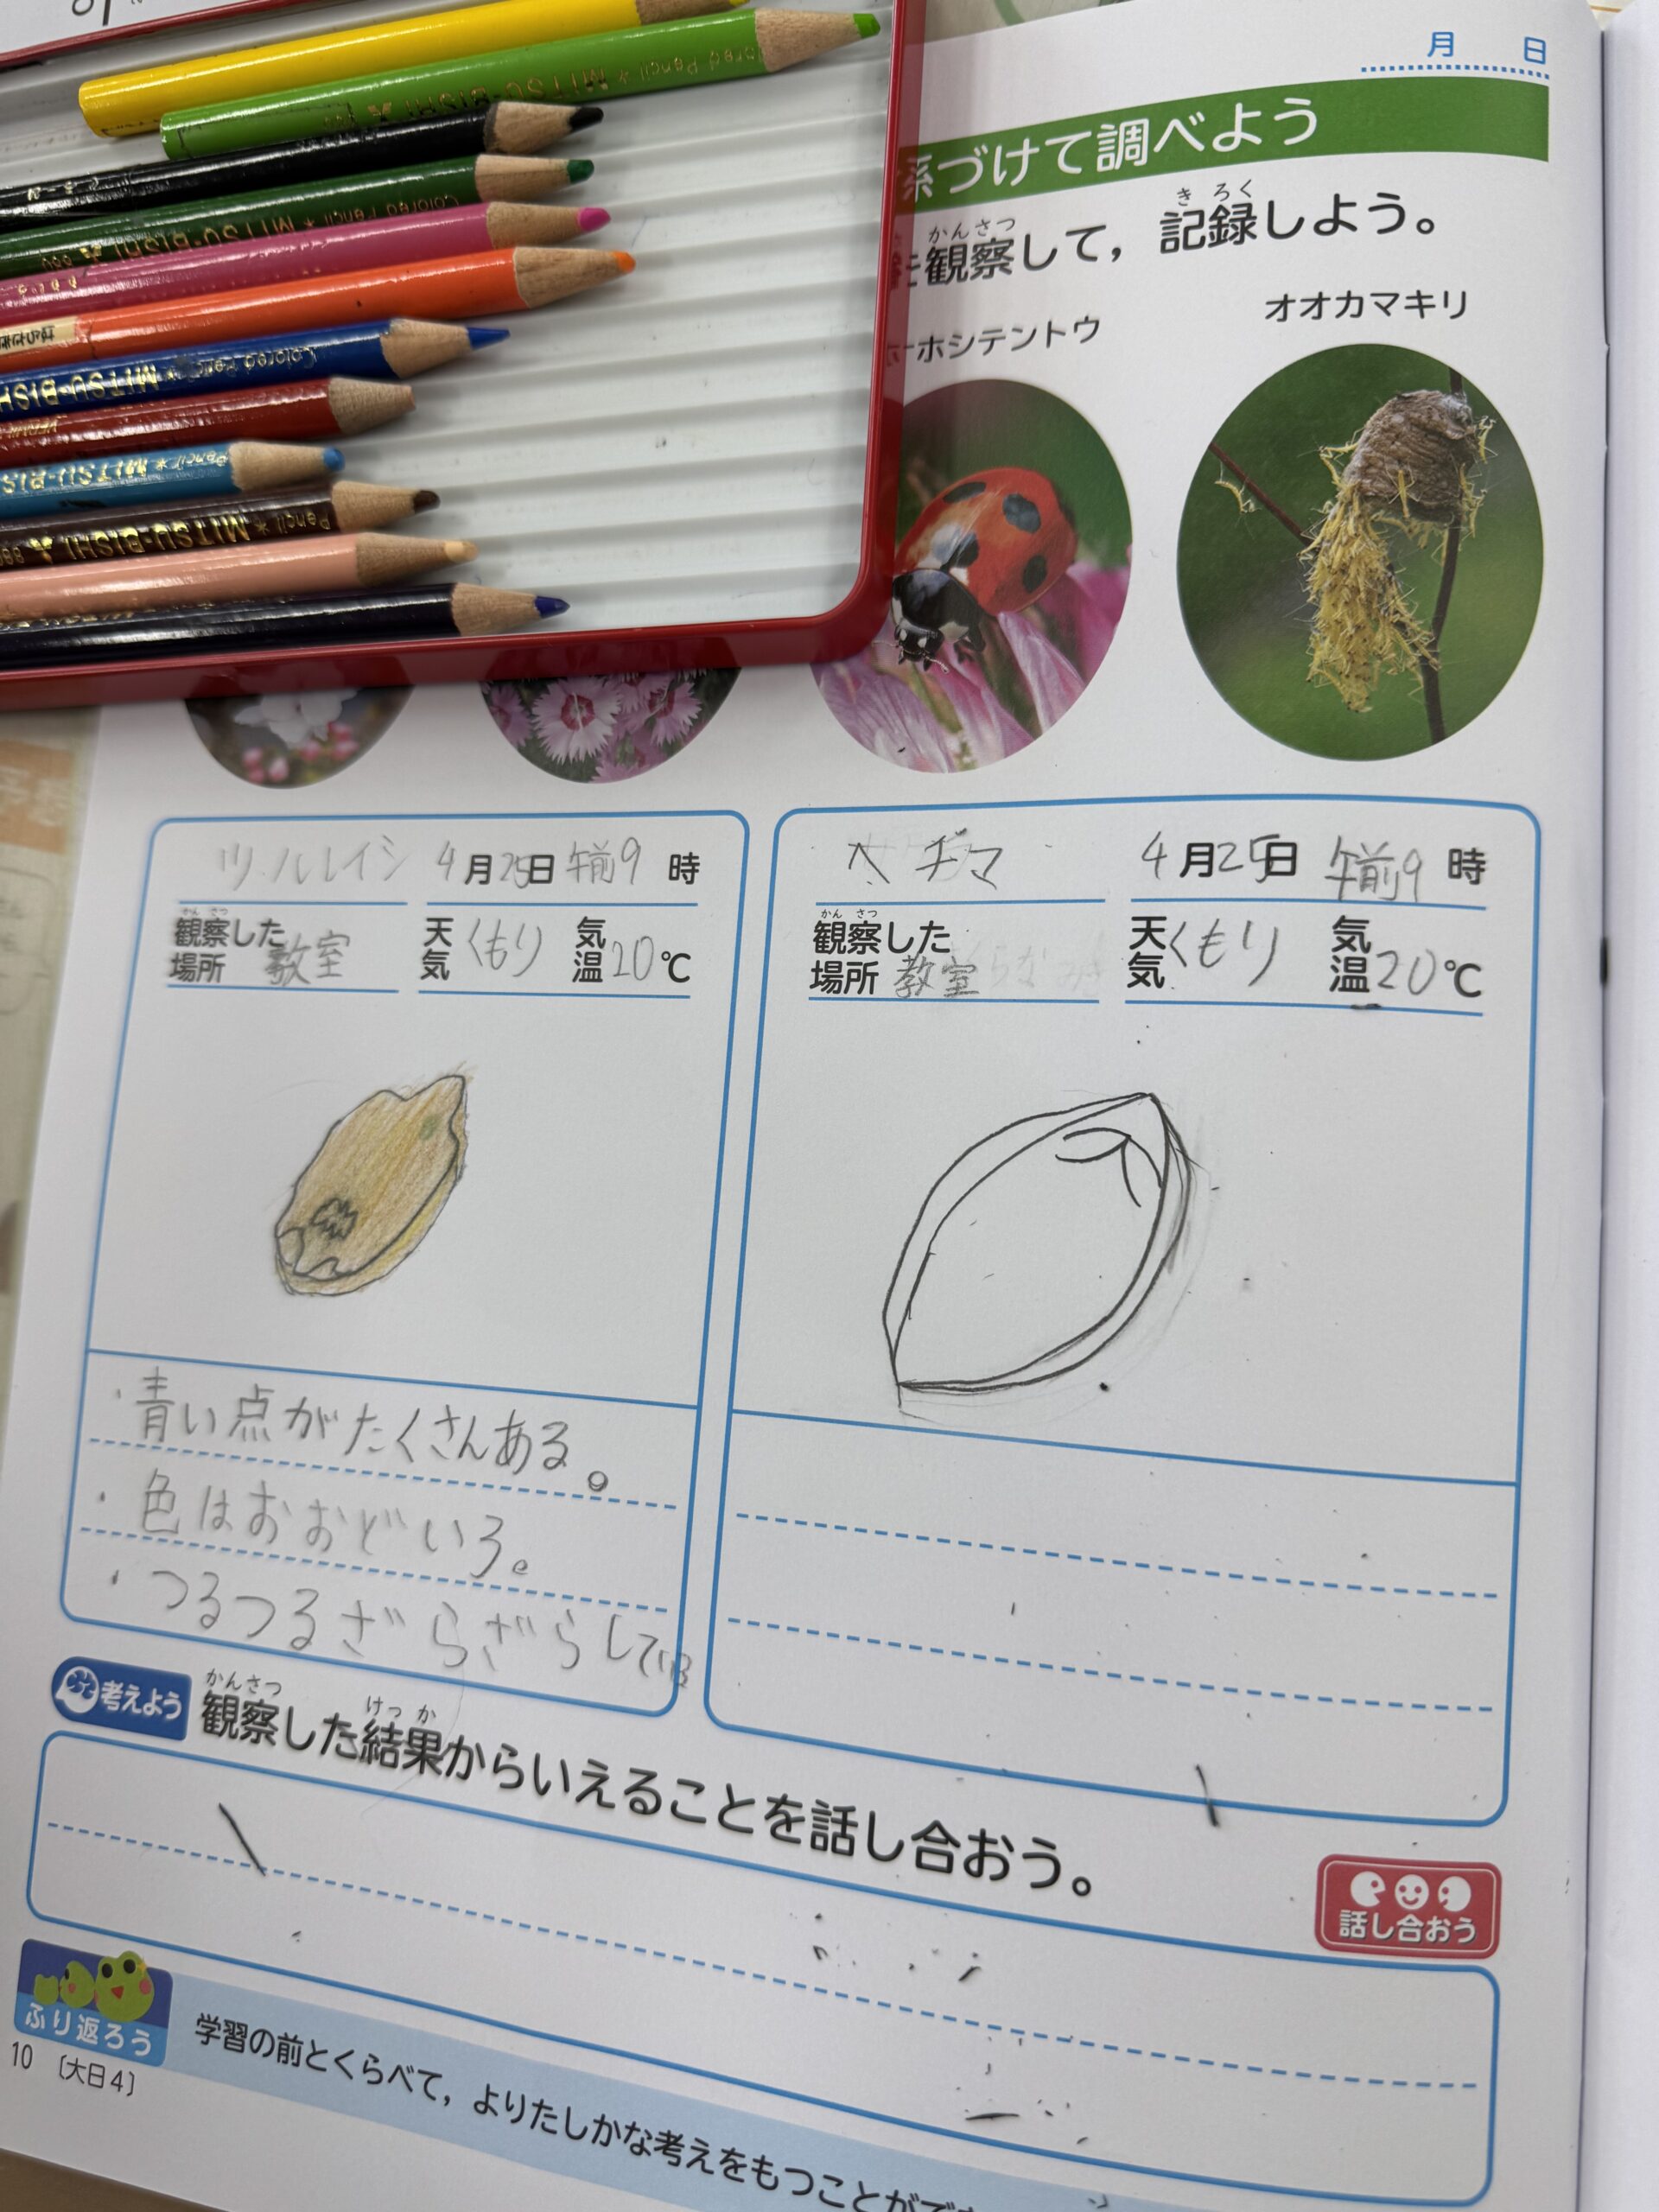 月 日
づけて調べよう
かんさつ きろく
観察して，記録しよう。
ホシテントウ
オオカマキリ
MITSU-BISHI
Colored Pencil * MITSU-BISHI
Colored Pencil MITSU-BISHI
Pencil * MITSU-BISHI
Pencil * MITSU-BISHI
ツルレイシ 4月25日 午前9時
かんさつ
観察した場所 教室 天気 くもり 気温 20℃
・青い点がたくさんある。
・色はおおどいろ。
・つるつるざらざらしている
ヘチマ 4月25日 午前9時
かんさつ
観察した場所 教室 天気 くもり 気温 20℃
考えよう
かんさつ けっか
観察した結果からいえることを話し合おう。
話し合おう
ふり返ろう
学習の前とくらべて，よりたしかな考えをもつことがで
10 〔大日4〕